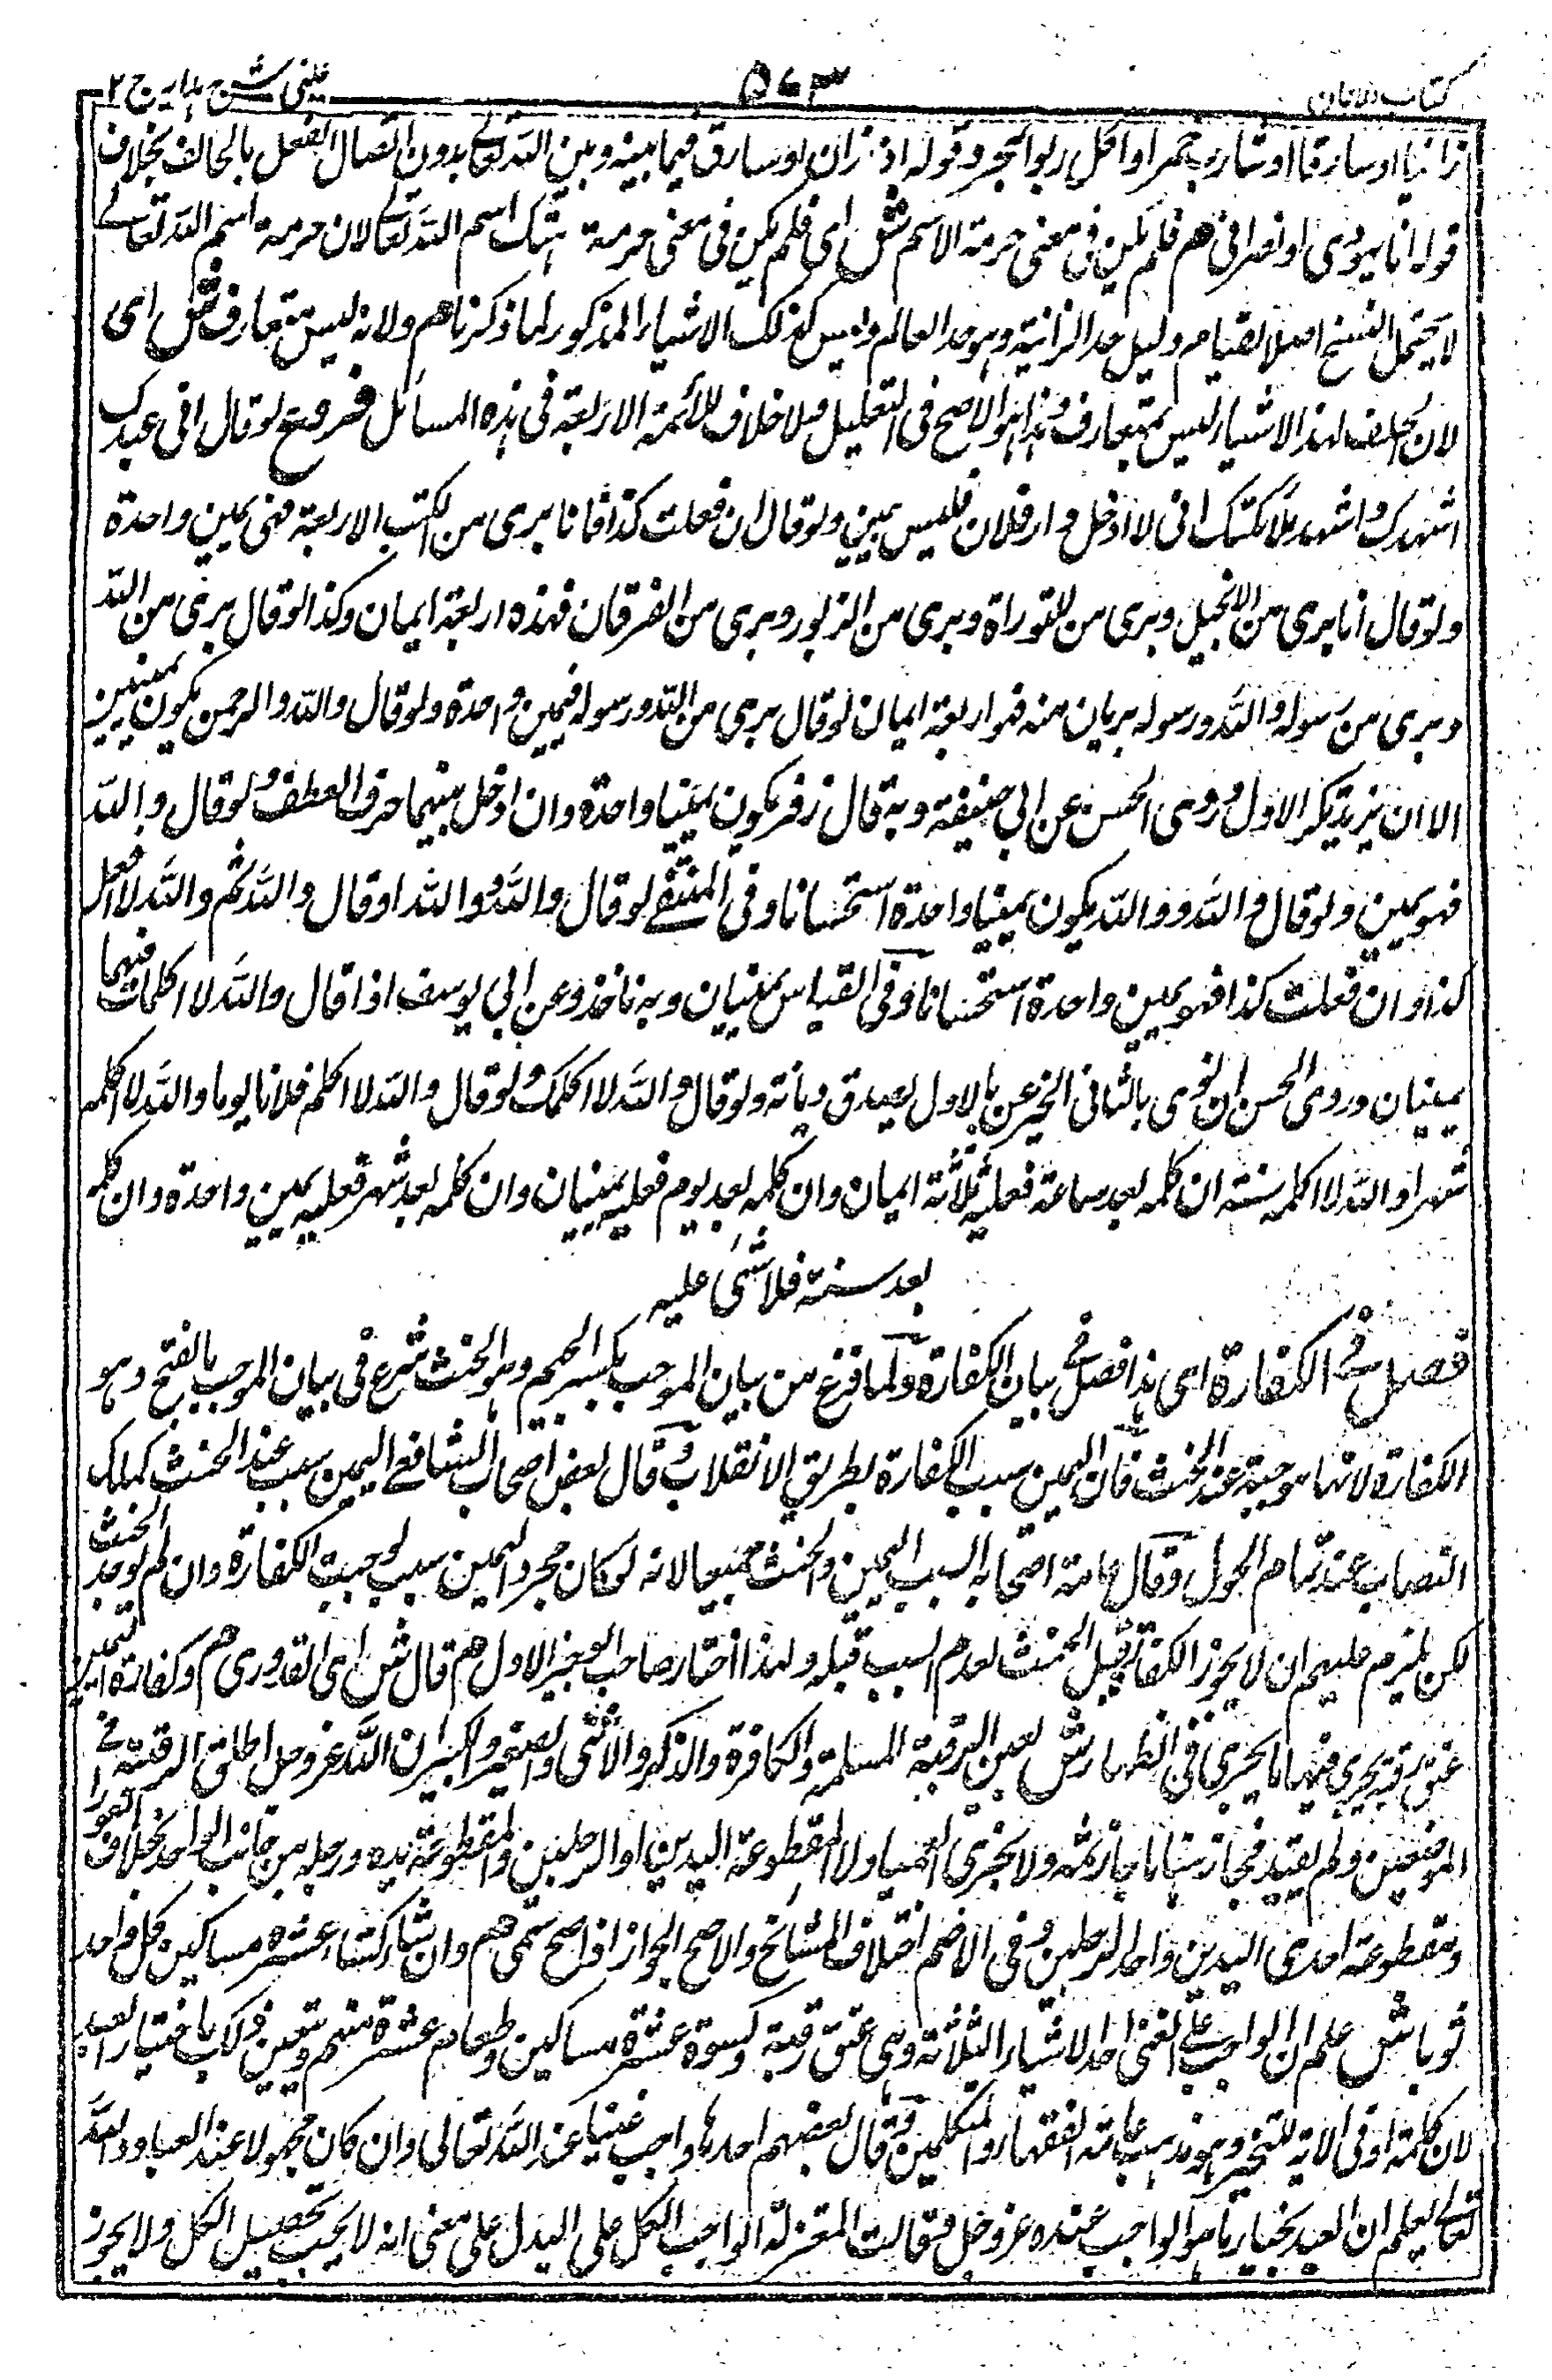 كتاب الايمان
٥٦٣
عيني شرح هدايه ج ٢
زانيا او سارقا او شارب خمر او اكل ربوا فجر وقوله اذ زان او سارق فيما بينه وبين الله تعالى بدون اتصال الفعل بالحالف بخلاف
قوله انا يهودى او نصرانى هم فلم يكن فى معنى حرمة الاسم ش اى فلم يكن فى معنى حرمة هتك اسم الله تعالى لان حرمة اسم الله تعالى
لا يحتمل النسخ اصلا لقيامه دليل حد الزانية وهو حد العالم وليس كذلك الاشياء المذكور لما ذكرنا هم ولانه ليس متعارف ش اى
لان الحلف لهذا الاشياء ليس بمتعارف وهذا هو الاصح فى التعليل ولا خلاف للائمة الاربعة فى هذه المسائل فروع لو قال انى عبدك
اشهدك واشهد ملائكتك انى لا ادخل دار فلان فليس يمين ولو قال ان فعلت كذا فانا برى من الكتب الاربعة فهى يمين واحدة
ولو قال انا برى من الانجيل وبرى من التوراة وبرى من الزبور وبرى من الفرقان فهذه اربعة ايمان وكذا لو قال برى من الله
وبرى من رسوله والله ورسوله بريان منه فهو اربعة ايمان لو قال برى من الله ورسوله فيمين واحدة ولو قال والله والرحمن يكون يمينين
الا ان يريد تكرير الاول وروى الحسن عن ابى حنيفة وبه قال زفر يكون يمينا واحدة وان ادخل بينهما حرف العطف ولو قال والله
فهو يمين ولو قال والله ووالله يكون يمينا واحدة استحسانا وفى المنتقى لو قال والله ووالله او قال والله ثم والله لا افعل
كذا وان فعلت كذا فهو يمين واحدة استحسانا وفى القياس يمينان وبه ناخذ وعن ابى يوسف اذا قال والله لا اكلمك فيهما
يمينان وروى الحسن ان نوى بالثانى الخبر عن بالاول يصدق ديانة ولو قال والله لا اكلمك ولو قال والله لا اكلم فلانا يوما والله لا اكلمه
شهرا والله لا اكلمه سنة ان كلمه بعد ساعة فعليه ثلاثة ايمان وان كلمه بعد يوم فعليه يمينان وان كلمه بعد شهر فعليه يمين واحدة وان كلمه
بعد سنة فلا شئ عليه
فصل فى الكفارة اى هذا فصل فى بيان الكفارة ولما فرغ من بيان الموجب بكسر الجيم وهو الحنث شرع فى بيان الموجب بالفتح وهو
الكفارة لانها موجبة عند الحنث فان اليمين سبب الكفارة بطريق الانقلاب وقال بعض اصحاب الشافعى اليمين سبب عند الحنث كملك
النصاب عند تمام الحول وقال عامة اصحابه السبب اليمين والحنث جميعا لانه لو كان مجرد اليمين سبب لوجبت الكفارة وان لم يوجد الحنث
لكن يلزم عليهم ان لا يجوز الكفارة قبل الحنث لعدم السبب قبله ولهذا اختار صاحب الوجيز الاول هم قال ش اى القدورى هم وكفارة اليمين
عتق رقبة يجزى فيها ما يجزى فى الظهار ش يعنى الرقبة المسلمة والكافرة والذكر والانثى والصغير والكبير ان الله عز وجل اطلق الرقبة فى
الموضعين ولم يقيد فجاز ههنا ما جاز ثمه ولا يجزى العمياء ولا المقطوعة اليدين او الرجلين والمقطوعة يده ورجله من جانب الواحد بخلاف العوراء
ومقطوعة احدى اليدين واحد الرجلين وفى الاصم اختلاف المشائخ والاصح الجواز اذا صح سمى هم وان شاء كسا عشرة مساكين كل واحد
ثوبا ش علم ان الواجب على الغنى احد الاشياء الثلاثة وهى عتق رقبة وكسوة عشرة مساكين وطعام عشرة منهم وتعين ذلك باختيار العبد
لان كلمة او فى الاية للتخيير وهو مذهب عامة الفقهاء والمتكلمين وقال بعضهم احدها واجب عينا عند الله تعالى وان كان مجهولا عند العباد والله
تعالى يعلم ان العبد يختار ما هو الواجب عنده عز وجل فقالت المعتزلة الواجب الكل على البدل على معنى انه لا يجب تحصيل الكل ولا يجوز